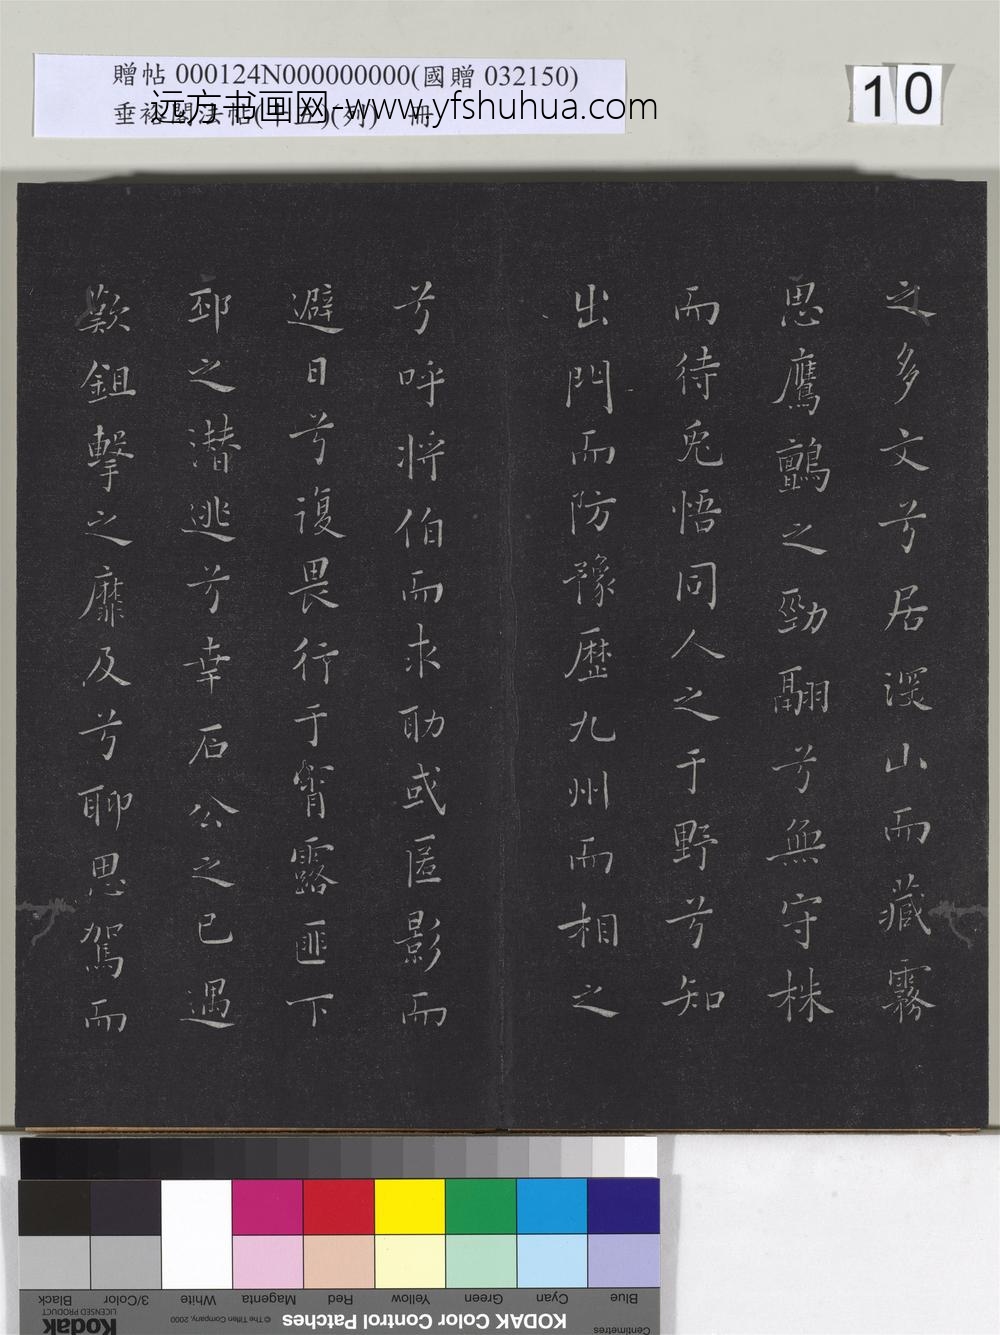 贈帖 000124N000000000(國贈 032150)
垂裕閣法帖(十五)(列) 冊
远方书画网-www.yfshuhua.com
10
之多文兮居深山而藏霧
思鷹鸇之勁翮兮無守株
而待兎悟同人之于野兮知
出門而防豫歷九州而相之
兮呼將伯而求助或匿影而
避日兮復畏行于宵露匪下
邳之潛逃兮幸石公之已遇
歎鉏擊之靡及兮聊思駕而
Blue Cyan Green Yellow Red Magenta White 3/Color Black
Centimetres KODAK Color Control Patches © The Tiffen Company, 2000 Kodak LICENSED PRODUCT